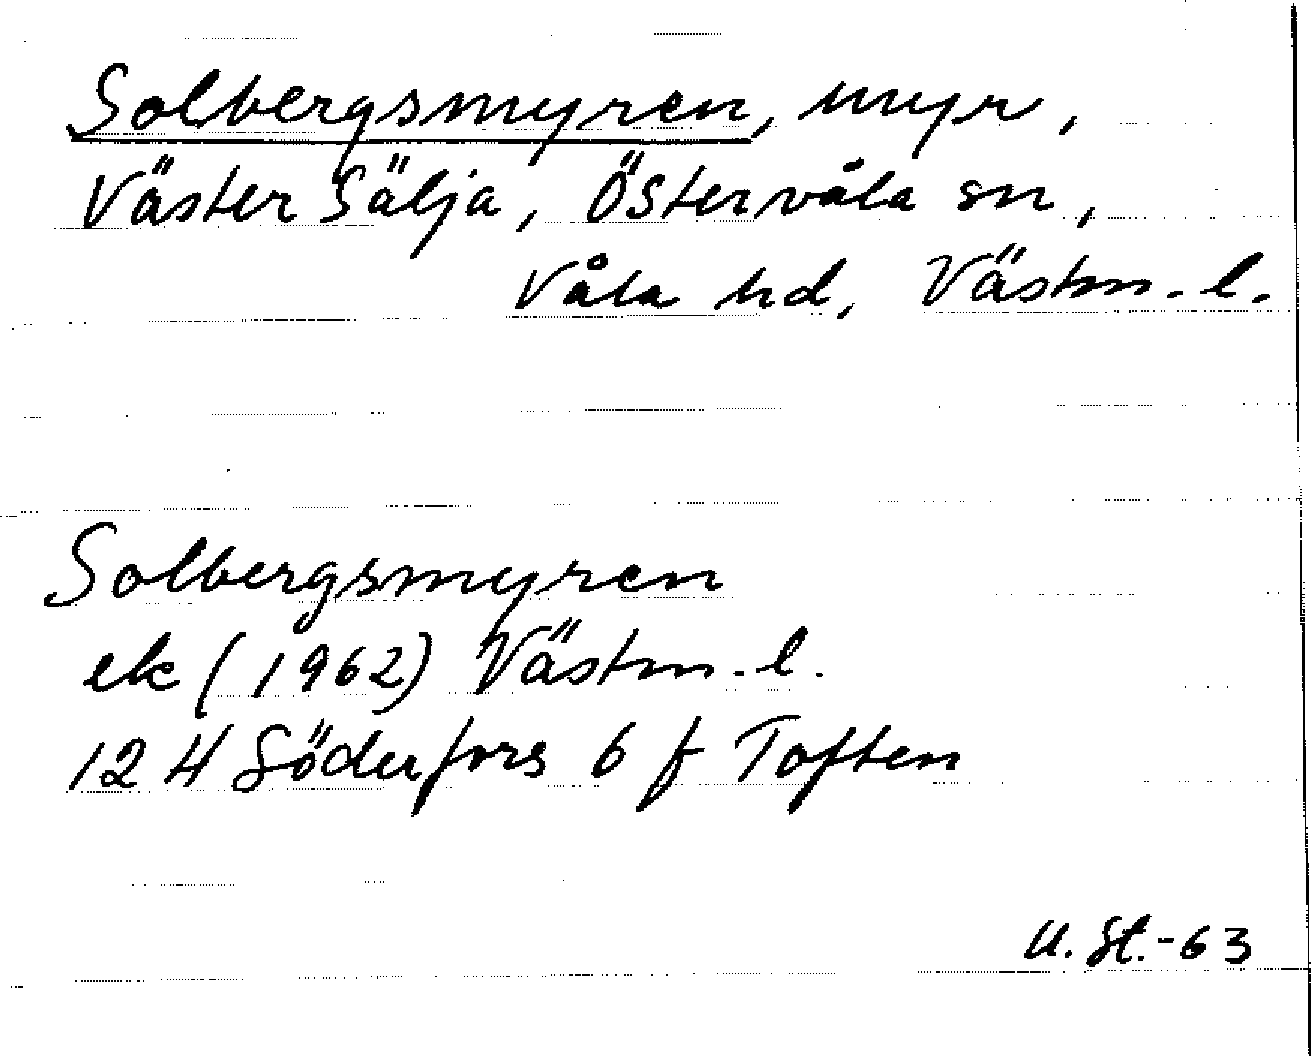 Solbergsmyren, myr,
Väster Sälja, Östervåla sn,
Våla hd, Västm. l.
Solbergsmyren
ek (1962) Västm. l.
12 H Söderfors 6 f Toften
U. St.-63